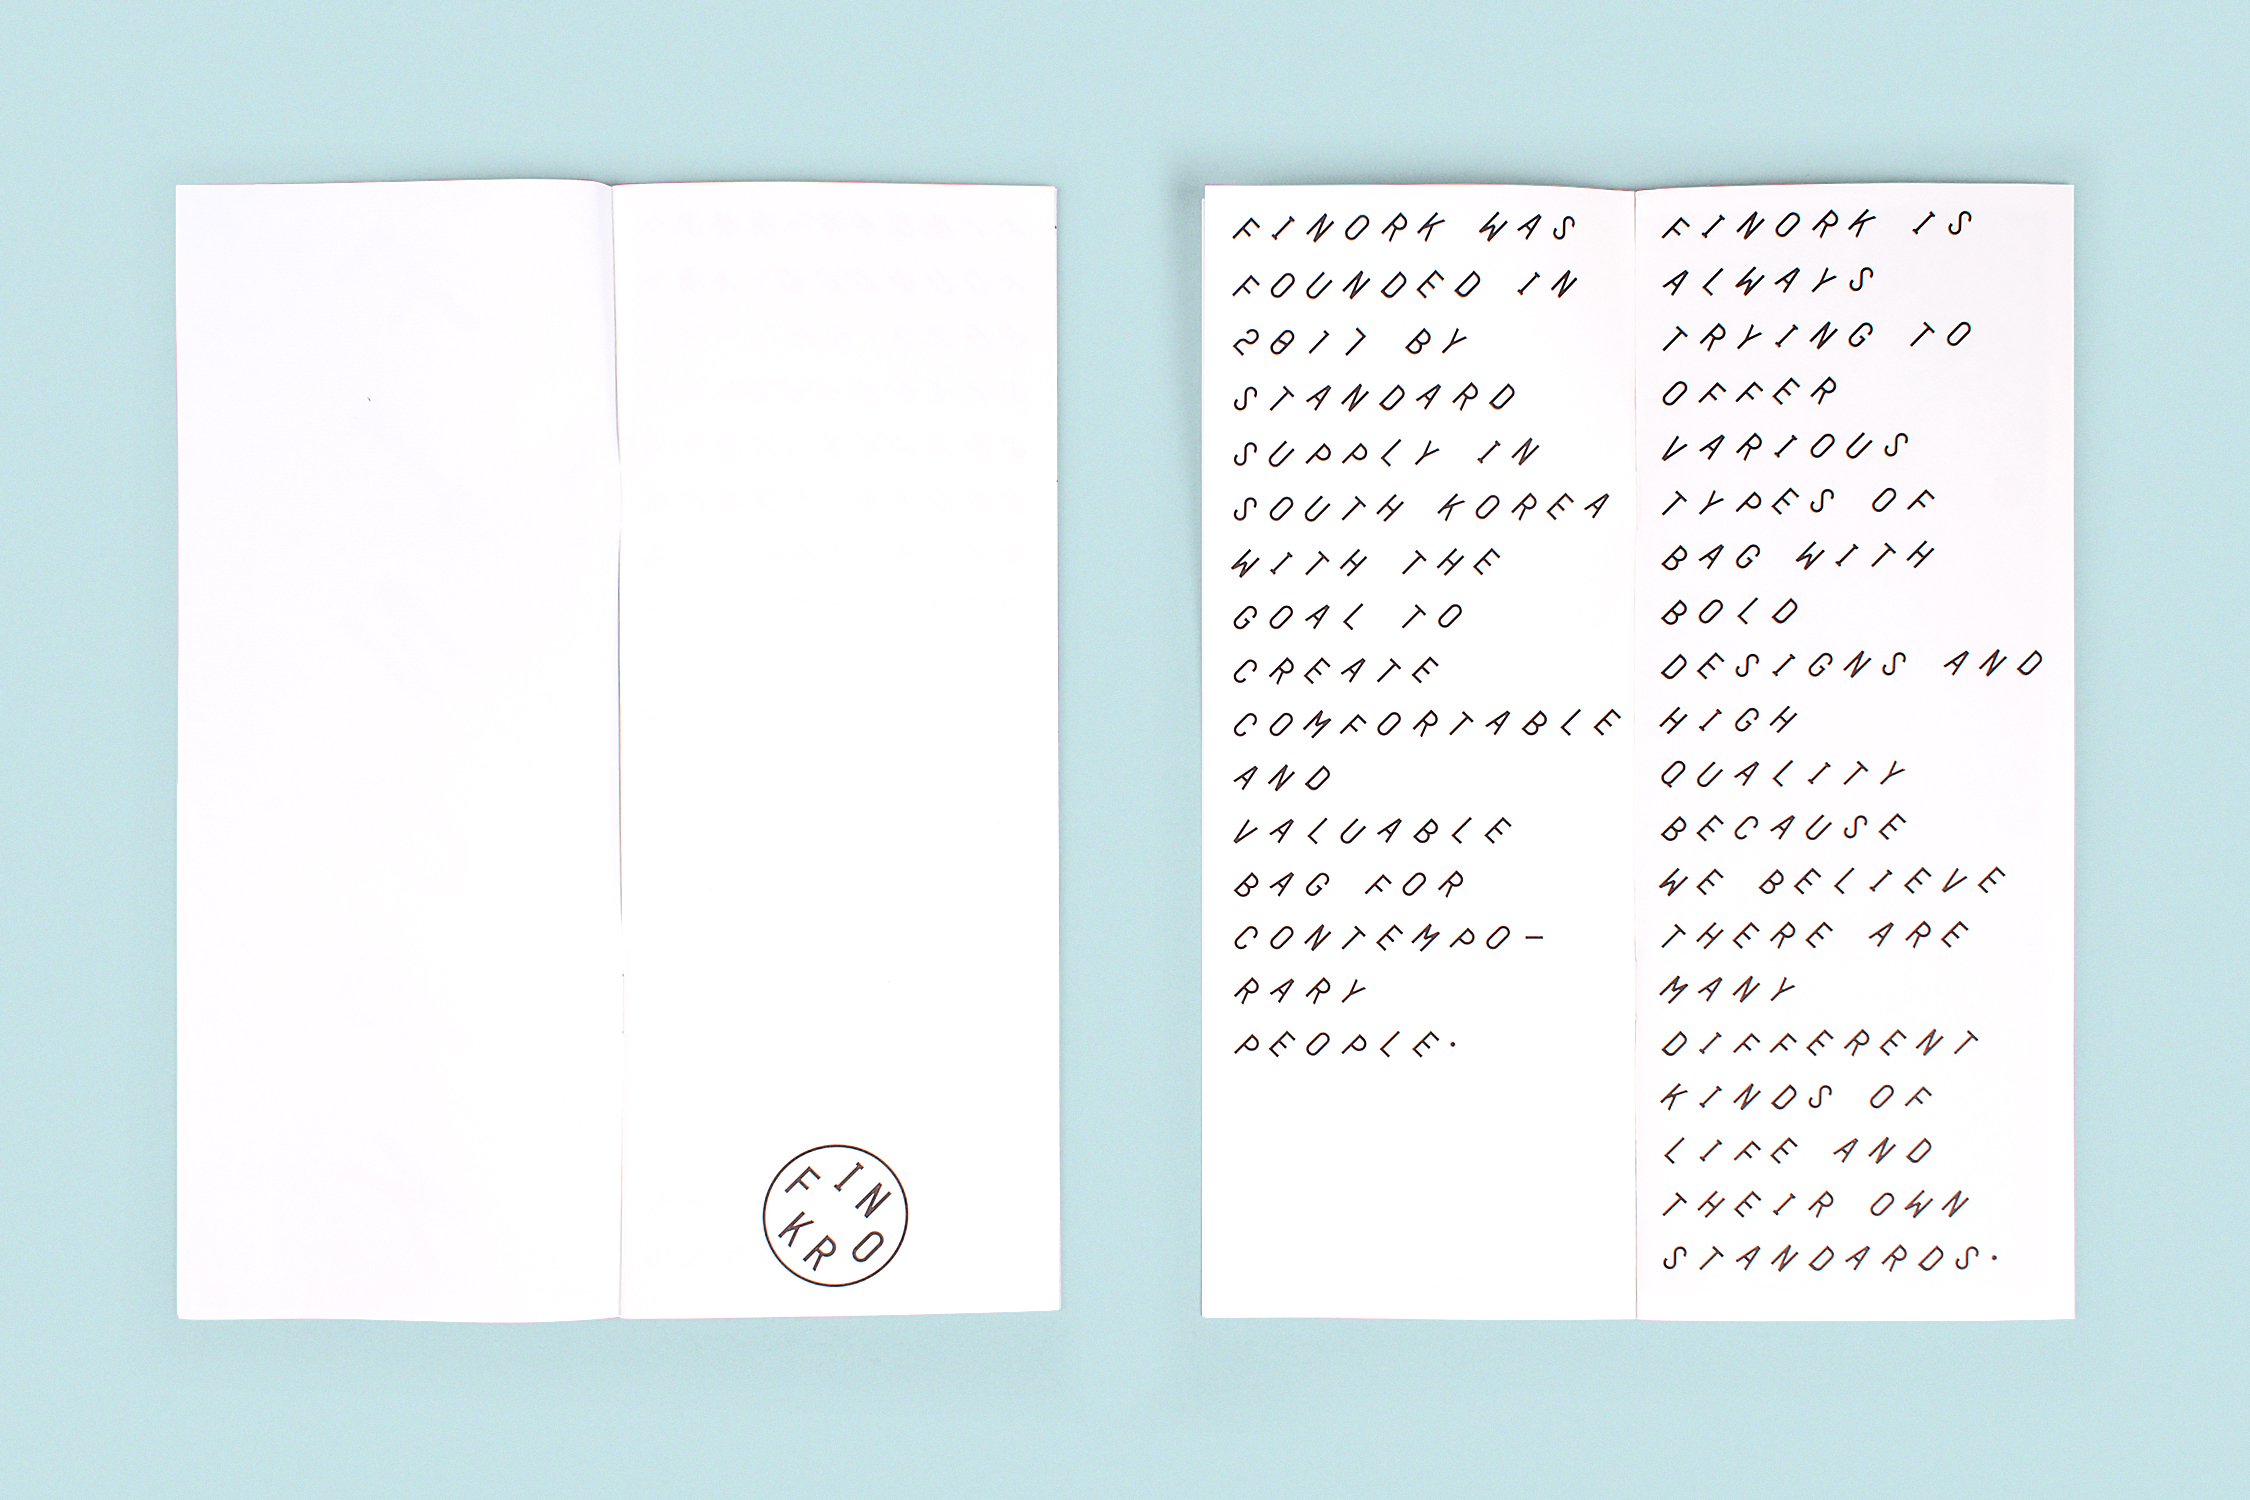 FINORK
FINORK WAS
FOUNDED IN
2017 BY
STANDARD
SUPPLY IN
SOUTH KOREA
WITH THE
GOAL TO
CREATE
COMFORTABLE
AND
VALUABLE
BAG FOR
CONTEMPO-
RARY
PEOPLE.
FINORK IS
ALWAYS
TRYING TO
OFFER
VARIOUS
TYPES OF
BAG WITH
BOLD
DESIGNS AND
HIGH
QUALITY
BECAUSE
WE BELIEVE
THERE ARE
MANY
DIFFERENT
KINDS OF
LIFE AND
THEIR OWN
STANDARDS.